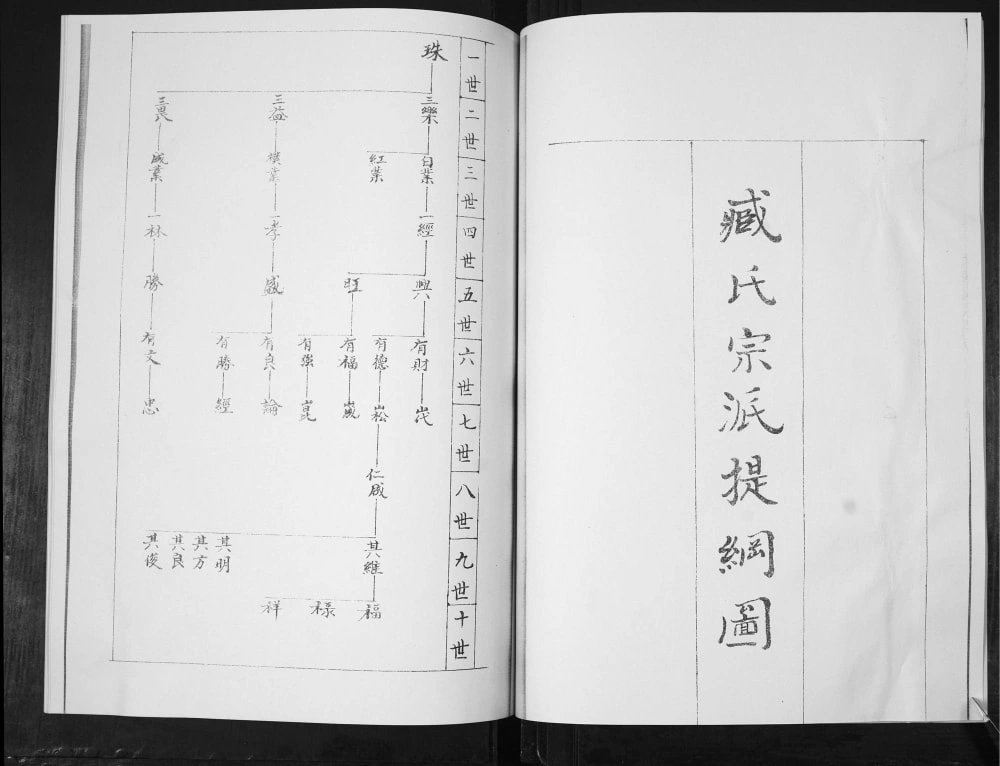 臧氏宗派提綱圖
一世 二世 三世 四世 五世 六世 七世 八世 九世 十世
珠
三樂 三益 三畏
白業 紅葉 成業
一經 一孝 一林
興 旺 盛 勝
有財 有德 有福 有強 有良 有勝 有文
岱 崧 崴 崑 論 經 忠
仁成
其維 其明 其方 其良 其俊
福 禄 祥